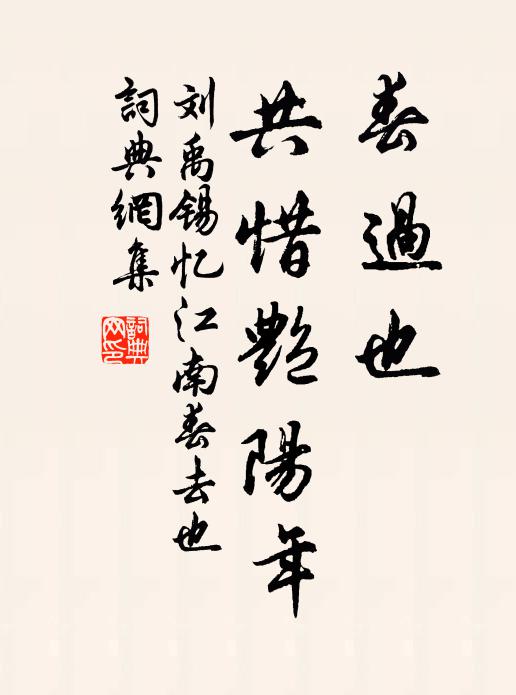 春過也
共惜艷陽年
刘禹锡忆江南春去也
詞典網集
詞典
网印